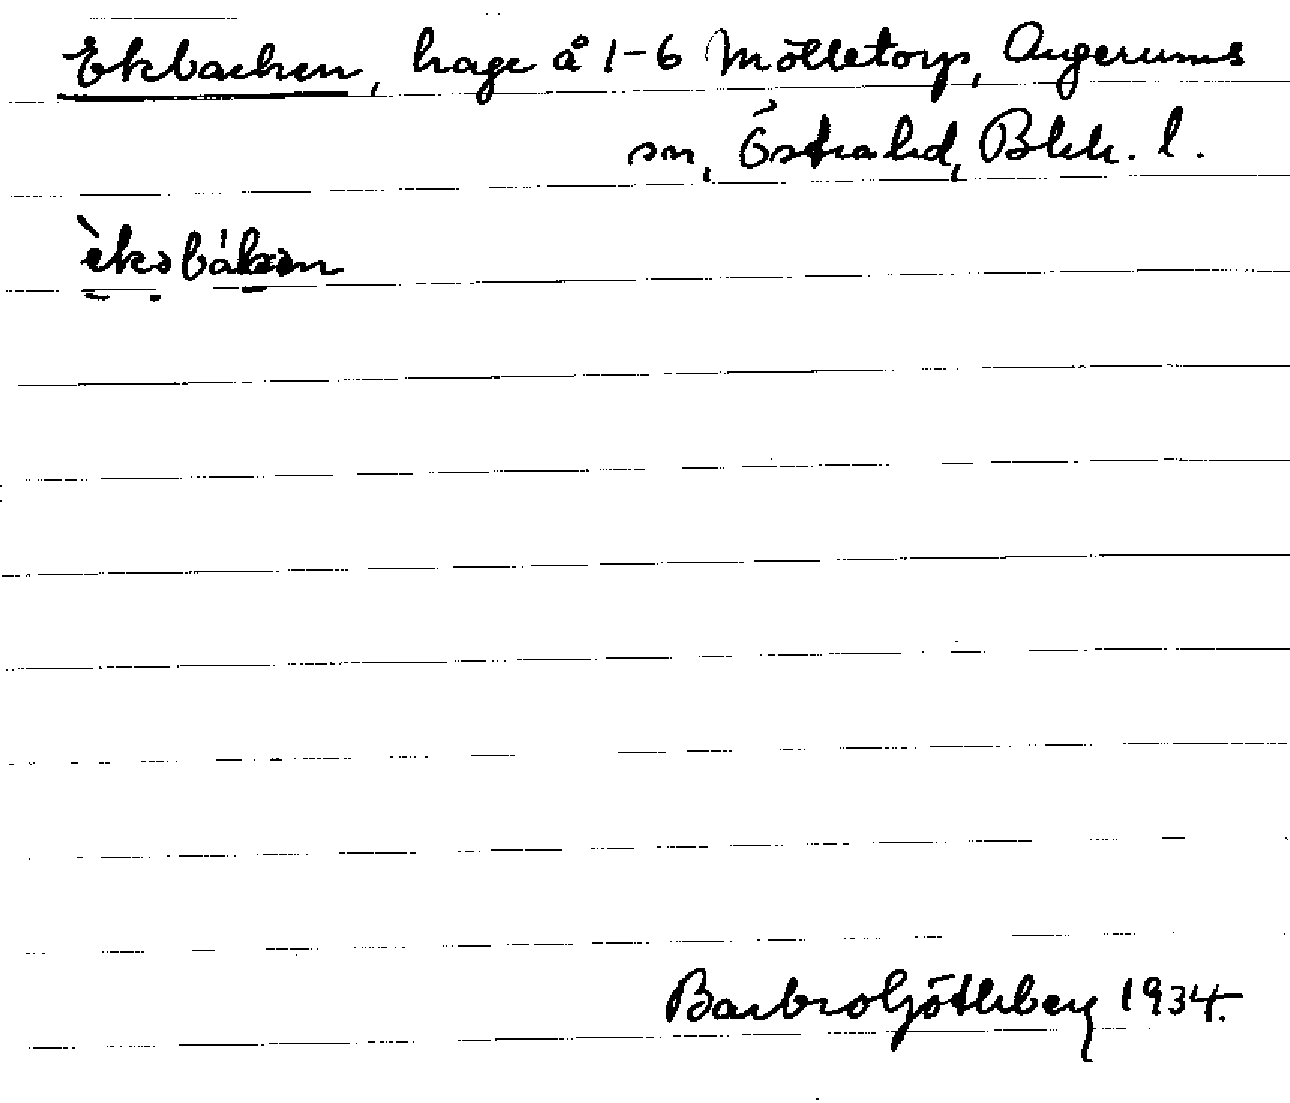 Ekbacken, hage å 1-6 Mölletorp, Augerums
sn, Östra hd, Blek. l.
èkəbákən
Barbro Götleberg 1934.